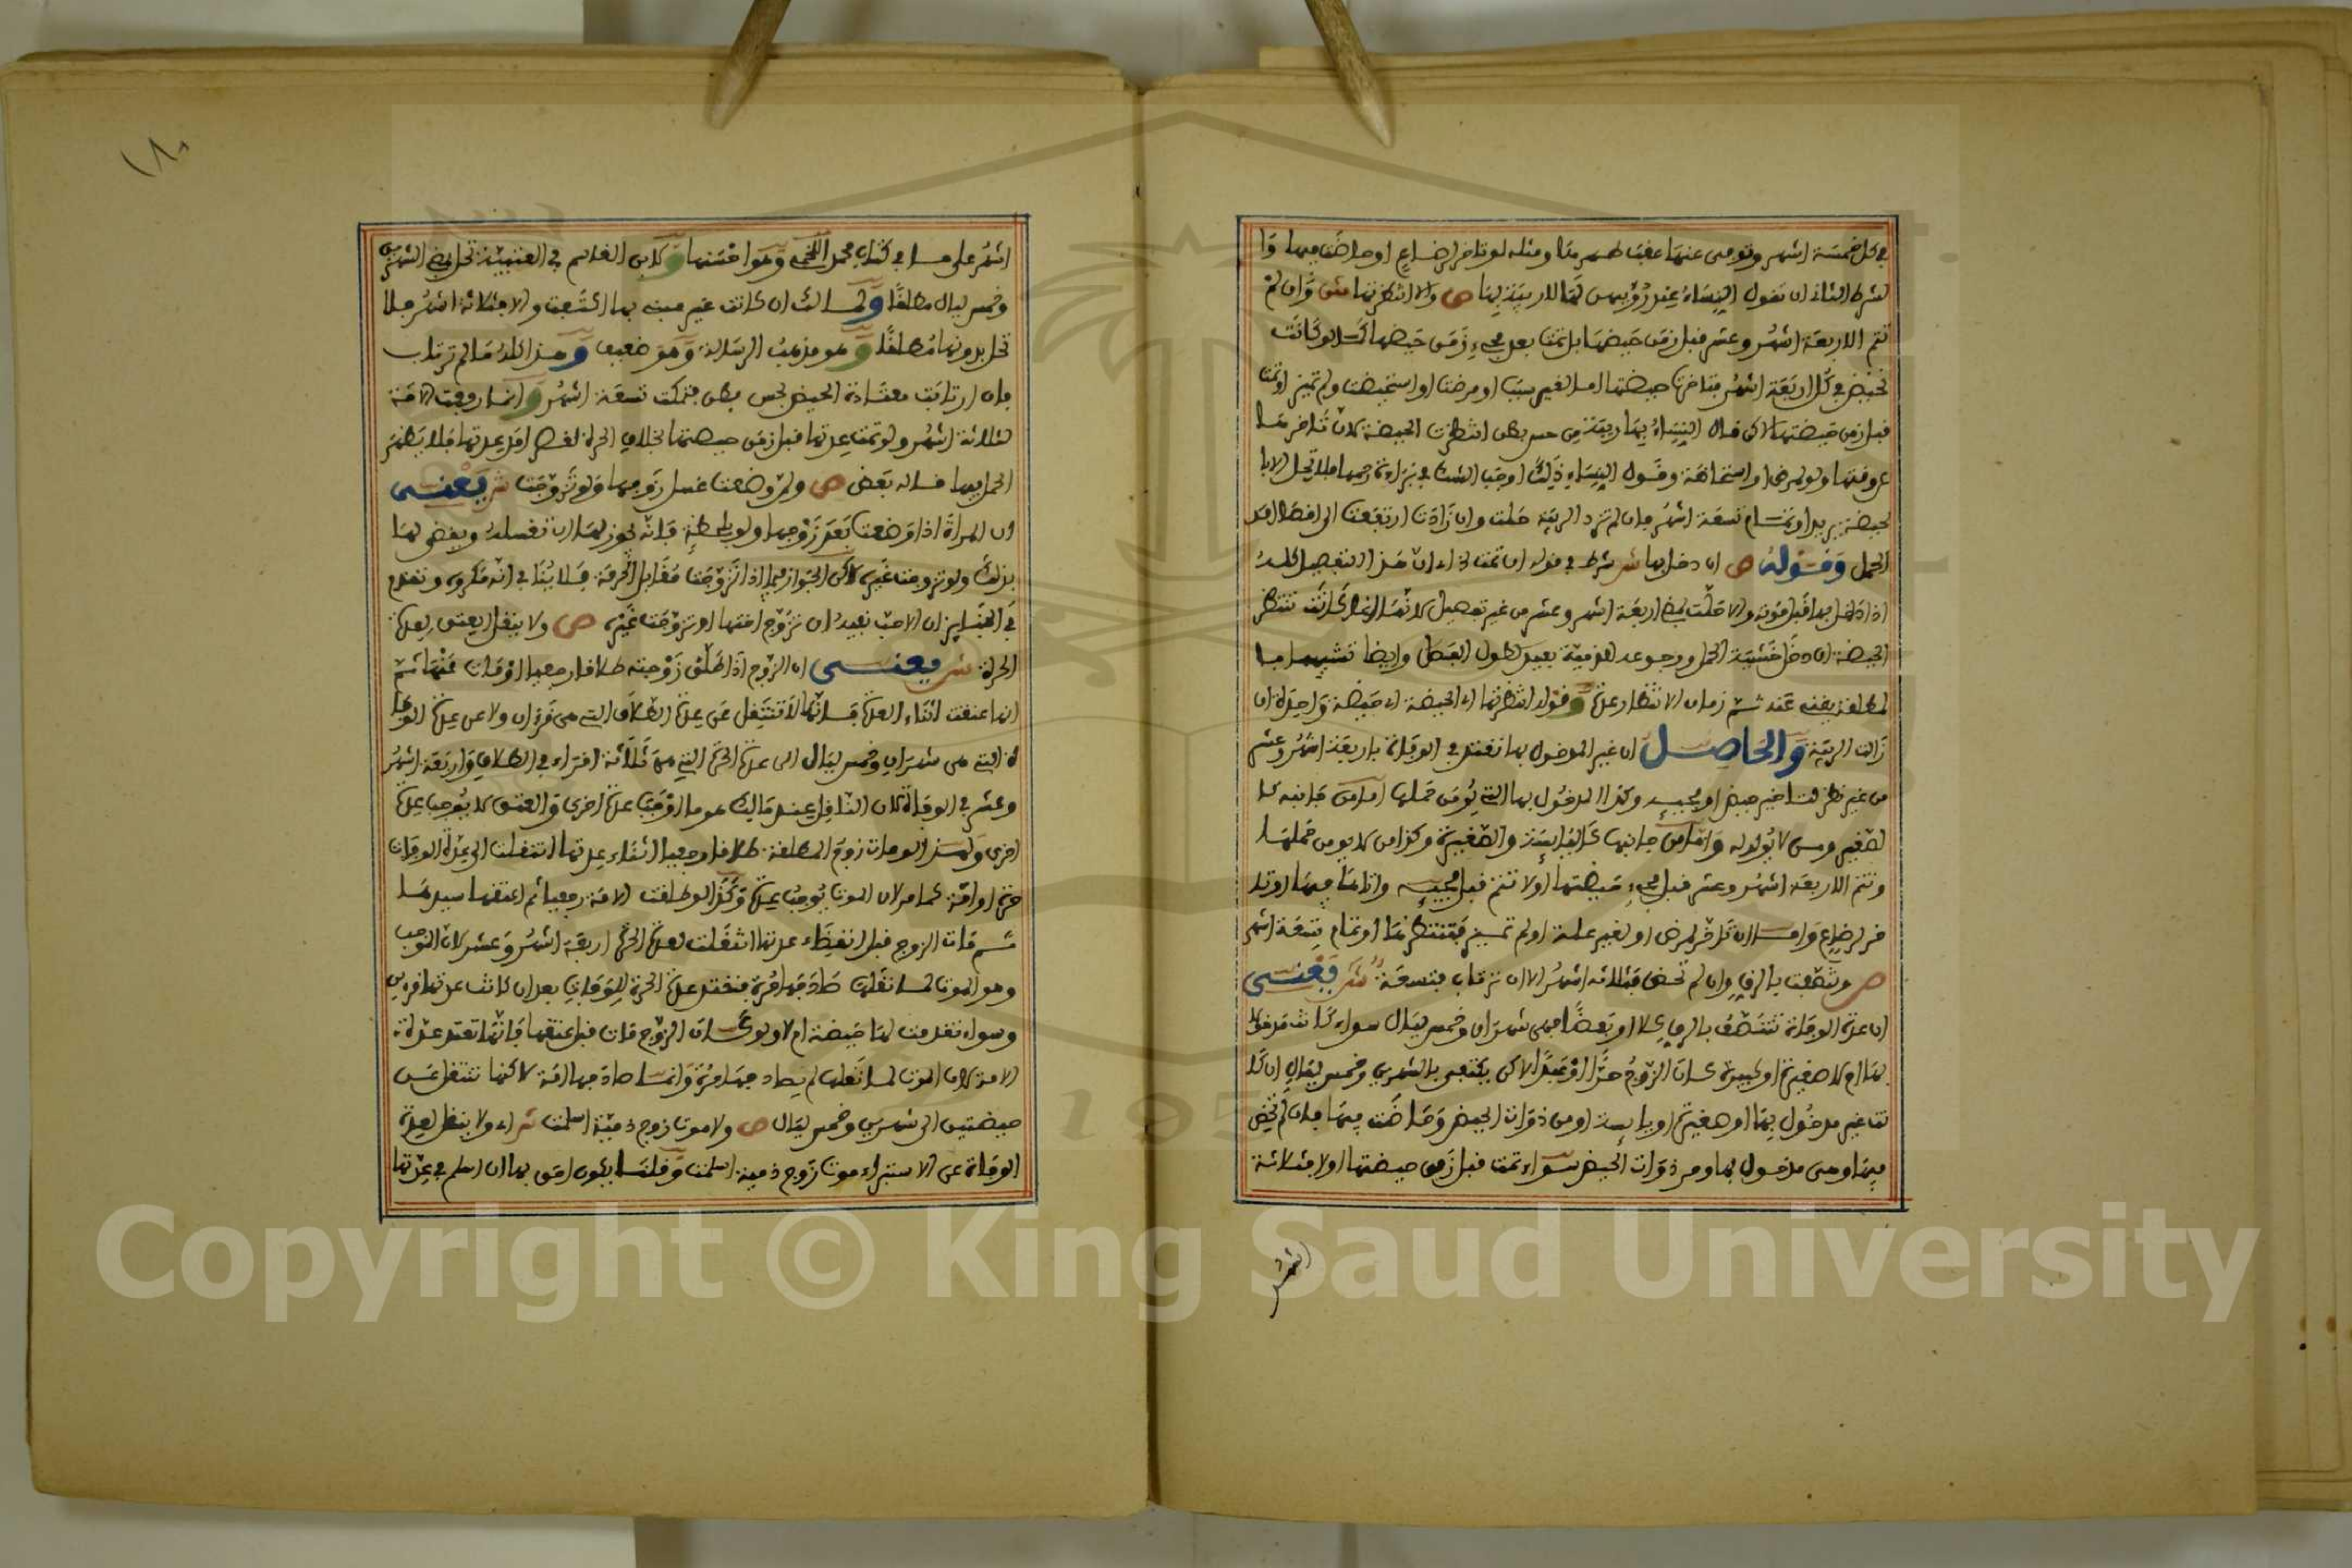 في كل خمسة اشهر وتوفى عنها عقب طهر منها ومثله لو تاخر لرضاع او حاضت فيها وا
لشرط الثاني ان تقول النساء عند رؤيتهن لها لا ريبة بها ص والا انتظرتها ش وان لم
تتم الاربعة اشهر وعشر قبل زمن حيضها بل تمت بعد مجيء زمن حيضها كما لو كانت
تحيض في كل اربعة اشهر فتاخرت حيضتها اما لغير سبب او مرضت او استحيضت ولم تميز او تمت
قبل زمن حيضتها لاكن قال النساء بها ريبة من حس بطن انتظرت الحيضة لان تاخر
عن وقتها ولو لمرض او استحاضة وقول النساء ذلك اوجب الشك في براءة رحمها فلا تحل الا با
لحيضة يريد او تمام تسعة اشهر فان لم تزد الريبة حلت وان زادت ارتفعت الى اقصى امد
الحمل وقوله ص ان دخل بها ش شرط في قوله ان تمت اي ان هذا التفصيل كله
اذا دخل بها قبل موته والا حلت بمضي اربعة اشهر وعشر من غير تفصيل لانها انما كانت تنتظر
الحيضة ان دخل خشية الحمل
زالت الريبة والحاصل ان غير المدخول بها تعتد في الوفاة باربعة اشهر وعشر
من غير نظر لتاخير حيض او مجيئه وكذا المدخول بها التي يومن حملها اما من جانبه كا
لصغير ومن لا يولد له واما من جانبها كاليايسة والصغيرة وكذا من لا يومن حملها
وتتم الاربعة اشهر وعشر قبل مجيء حيضتها او لا تتم قبل مجيئه واتاها فيها او تا
خر لرضاع واما ان تاخر لمرض او لغير علة او لم تميز فتنتظرها او تمام تسعة اشهر
ص وتنصفت بالرق وان لم تحض فثلاثة اشهر الا ان ترتاب فتسعة ش يعني
ان عدة الوفاة تتنصف بالرق كلا او بعضا فهي شهران وخمس ليال سواء كانت مدخولا
بها ام لا صغيرة او كبيرة كان الزوج حرا او عبدا لاكن يكتفى بالشهرين وخمس ليال ان كا
نت غير مدخول بها او صغيرة او يايسة او من ذوات الحيض وحاضت فيها فان لم تحض
فيها وهي مدخول بها ومن ذوات الحيض سواء تمت قبل زمن حيضتها او لا فثلاثة
اشهر
١٨٠
اشهر على ما في كتاب محمد اللخمي وهو احسنها وكلام ابن القاسم في العتبية تحل بمضي الشهرين
وخمس ليال مطلقا ولمالك ان كانت غير مبنى بها اكتفت والا فثلاثة اشهر فلا
تحل بدونها مطلقا وهو مذهب الرسالة وهو ضعيف وهذا كله ما لم ترتاب
فان ارتابت معتادة الحيض بحس بطن فتمكث تسعة اشهر وانما رفعت الامة
لثلاثة اشهر ولو تمت عدتها قبل زمن حيضتها بخلاف الحرة لقصر امد عدتها فلا يظهر
الحمل فيها قاله بعض ص ولمن وضعت غسل زوجها ولو تزوجت ش يعني
ان المراة اذا وضعت بعد زوجها ولو بلحظة فانه يجوز لها ان تغسله ويقضى لها
بذلك ولو تزوجت غيره لاكن الجواز فيما اذا تزوجت مقابل الحرمة فلا ينافي انه مكروه وتقدم
في الجنايز ان الاحب نفيه ان تزوج اختها او تزوجت غيره ص ولا ينقل العتق لعدة
الحرة ش يعني ان الزوج اذا طلق زوجته طلاقا رجعيا او مات عنها ثم
انها عتقت اثناء العدة فانها لا تنتقل عن عدة الطلاق التي هي قرءان ولا عن عدة الوفا
ة التي هي شهران وخمس ليال الى عدة الحرة التي هي ثلاثة اقراء في الطلاق واربعة اشهر
وعشر في الوفاة لان الناقل عند مالك هو ما اوجب عدة اخرى والعتق لا يوجب عدة
اخرى ولهذا لو مات زوج المطلقة طلاقا رجعيا اثناء عدتها انتقلت الى عدة الوفاة
حرة او امة كما مر لان الموت يوجب عدة وكذا لو طلقت الامة رجعيا ثم اعتقها سيدها
ثم مات الزوج قبل انقضاء عدتها انتقلت لعدة الحرة اربعة اشهر وعشر لان الموجب
وهو الموت لما نقلها صادفها حرة فتعتد عدة الحرة للوفاة بعد ان كانت عدتها قرءين
وسواء تقدمت لها حيضة ام لا ولو كان الزوج مات قبل عتقها فانها تعتد عدة
الامة لان الموت لما نقلها لم يصادفها حرة وانما صادفها امة لاكنها تنتقل عن
حيضتين الى شهرين وخمس ليال ص ولا موت زوج ذمية اسلمت ش اي ولا ينقل لعدة
الوفاة عن الاستبراء موت زوج ذمية اسلمت وقلنا يكون احق بها ان اسلم في عدتها
Copyright © King Saud University